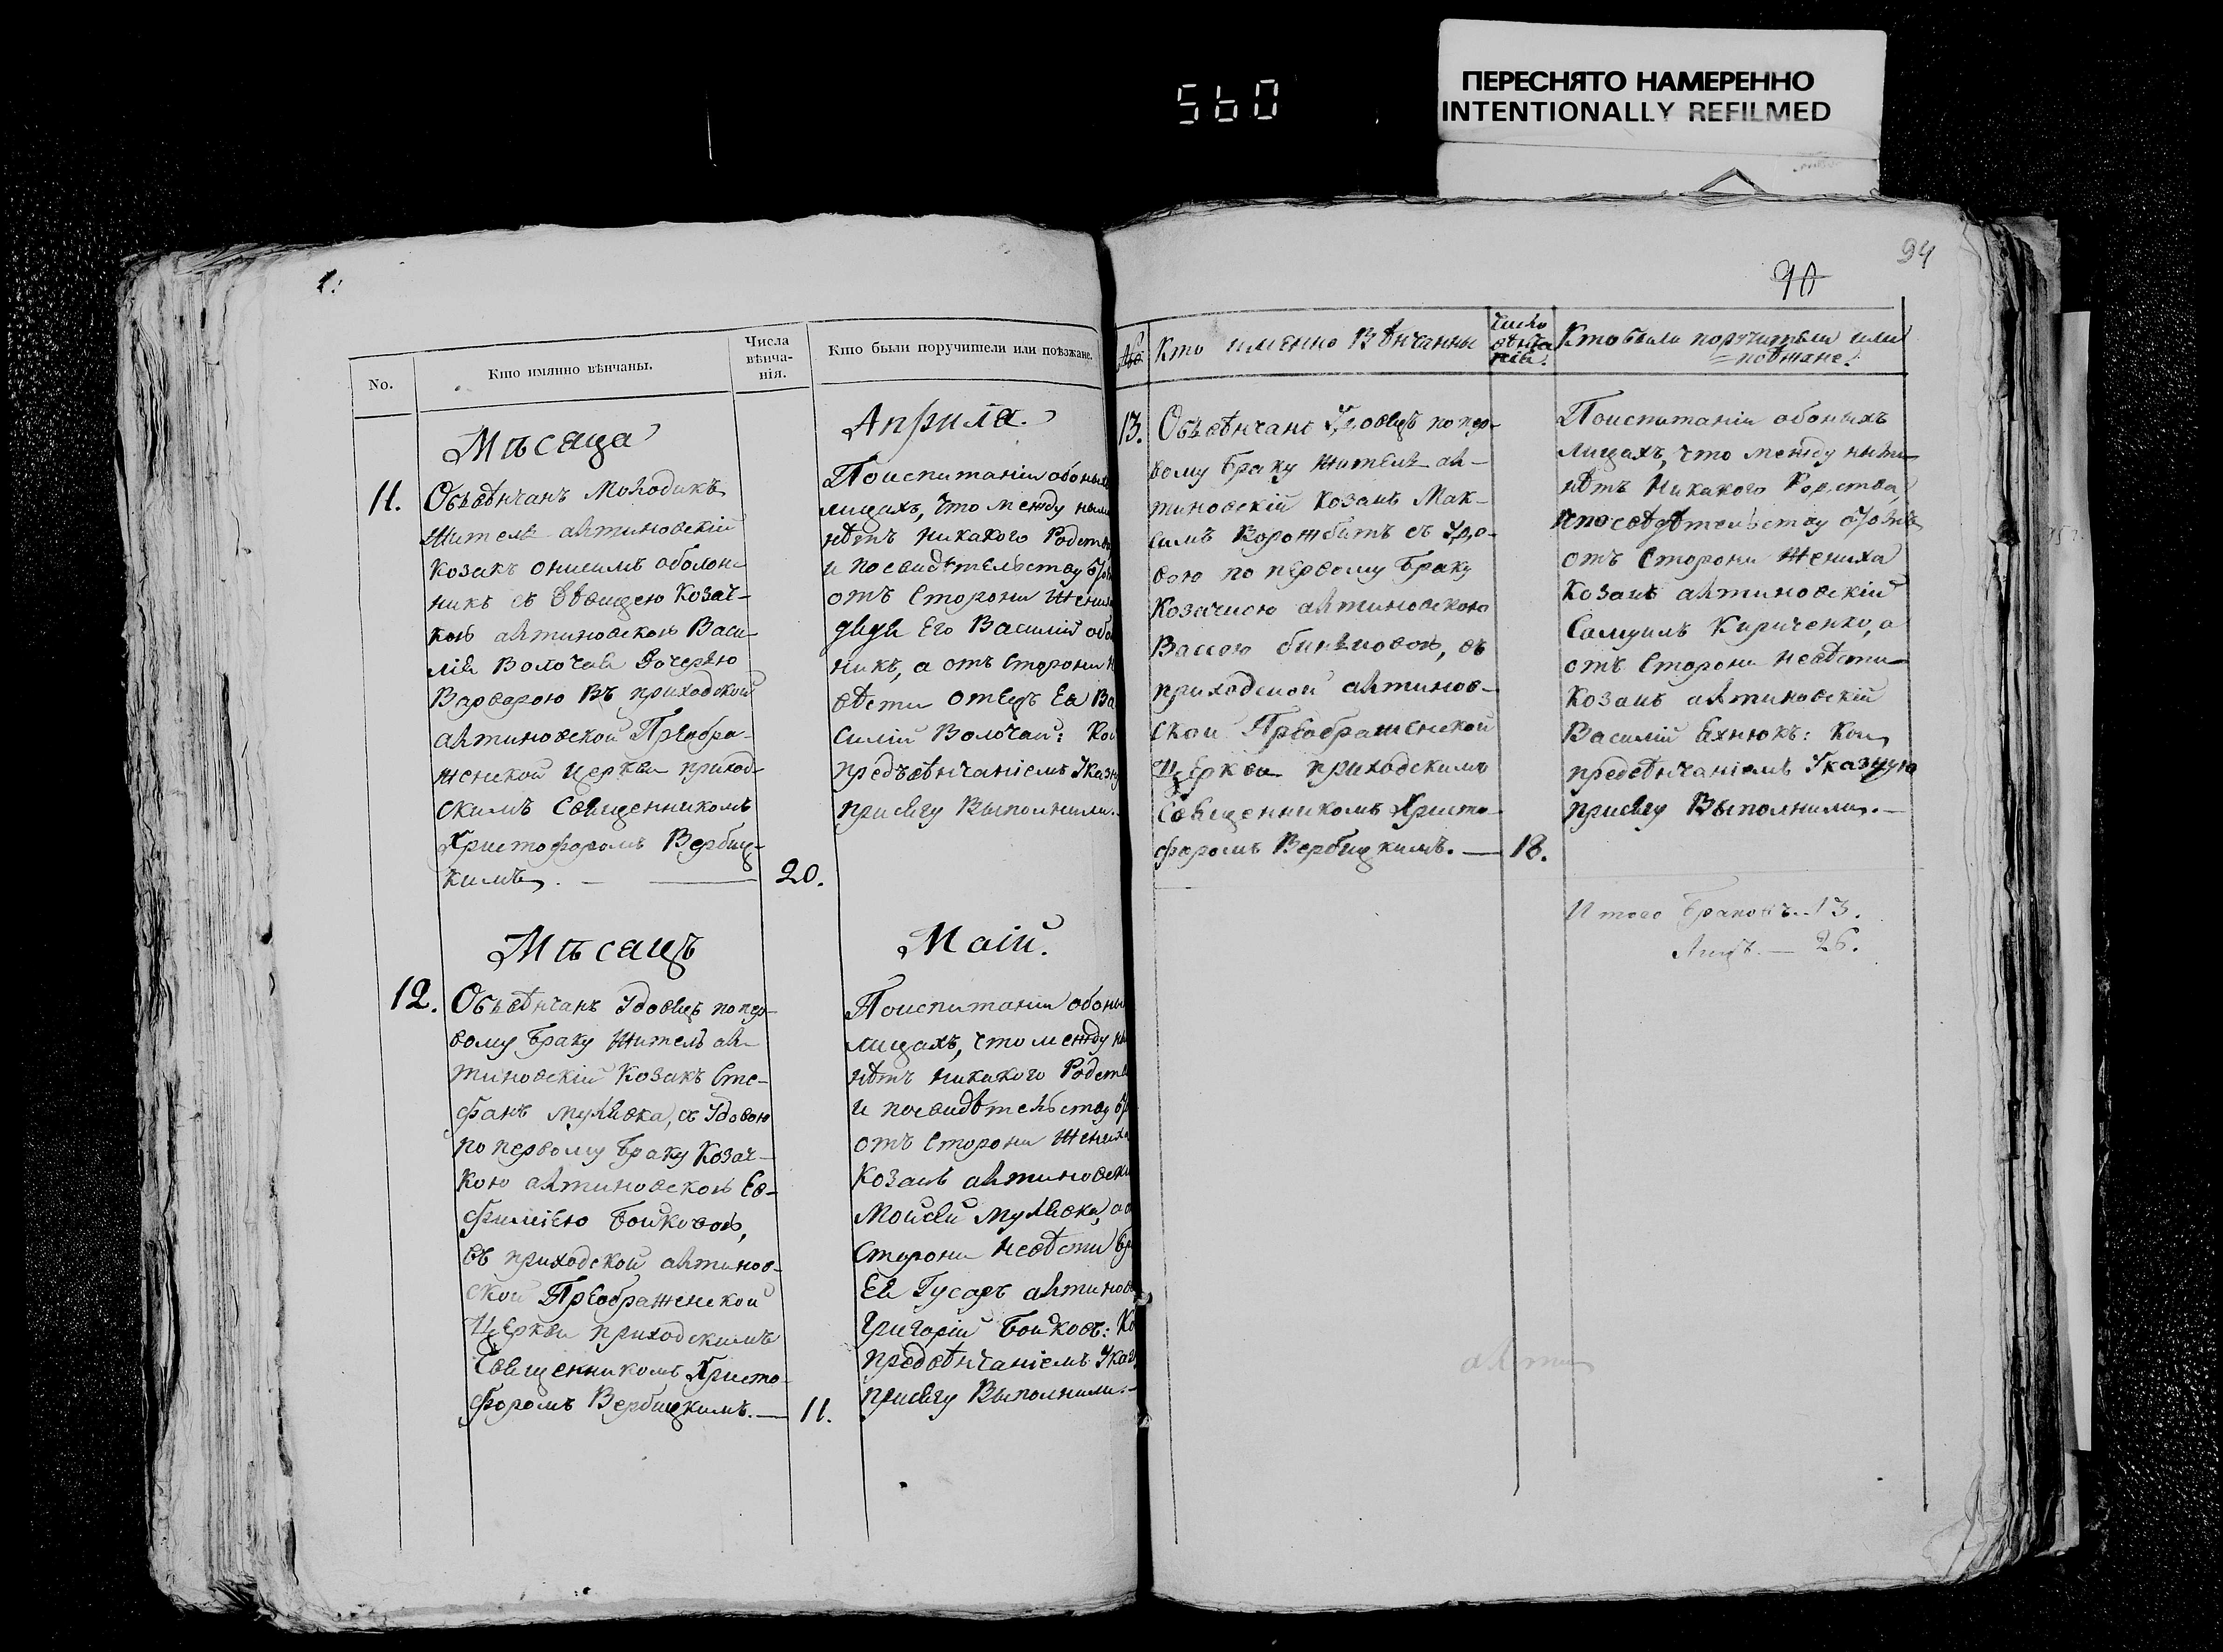 560
ПЕРЕСНЯТО НАМЕРЕННО
INTENTIONALLY REFILMED
No.
Кто имянно вѣнчаны.
Числа
вѣнча-
нія.
Кто были поручители или поѣзжане.
Мѣсяца
Априля.
11.
Объвѣнчанъ Молодикъ
житель алтиновскій
козакъ онисимъ оболон-
никъ съ дѣвицею козач-
кою алтиновскою Васи-
лія Волочая дочерью
Варварою въ приходской
алтиновской Преобра-
женской церкви приход-
скимъ священникомъ
Христофоромъ Вербиц-
кимъ.
20.
Поиспитаніи обоныхъ
лицахъ, что между ними
нѣтъ никакого Родства
и посвидѣтельству
отъ Сторони Жениха
дядя Его Василій
никъ, а отъ Сторони
вѣсти отецъ Ея Ва
силій Волочай: Кои
предъвѣнчаніемъ
присягу Выполнили.
Мѣсяцъ
Маій.
12.
Объвѣнчанъ Удовецъ попер-
вому браку житель ал-
тиновскій Козакъ Сте-
фанъ мулявка, съ Удовою
по первому браку Козач-
кою алтиновскою Ев-
фиміею Бойковою,
въ приходской алтинов-
ской Преображенской
Церкви приходскимъ
Священникомъ Христо-
форомъ Вербицкимъ.
11.
Поиспитаніи
лицахъ, что между
нѣтъ никакого
и посвидѣтельству
отъ Сторони Жениха
Козакъ
Мойсей мулявка,
Сторони невѣсти
Ея Гусаръ
Григорій Бойковъ:
предвѣнчаніемъ
присягу Выполнили.
90
94
№
Кто именно Вѣнчанны
Число
вѣнча
нія.
Кто были поручители или
поѣзжане.
13.
Объвѣнчанъ Удовецъ по пер-
вому браку житель ал-
тиновскій Козакъ Мак-
симъ Ворожбитъ съ Удо-
вою по первому браку
Козачкою алтиновскою
Вассою, въ
приходской алтинов-
ской Преображенской
Церкви приходскимъ
Священникомъ Христо-
форомъ Вербицкимъ.
18.
Поиспитаніи обоныхъ
лицахъ, что между ними
нѣтъ Никакого Родства,
и посвѣдѣтельству
отъ Сторони Жениха
Козакъ алтиновскій
Самуилъ Кириченко, а
отъ Сторони невѣсти
Козакъ алтиновскій
Василій Ехнюкъ: Кои
предвѣнчаніемъ Указную
присягу Выполнили.
Итого браковъ. 13.
Лицъ. — 26.